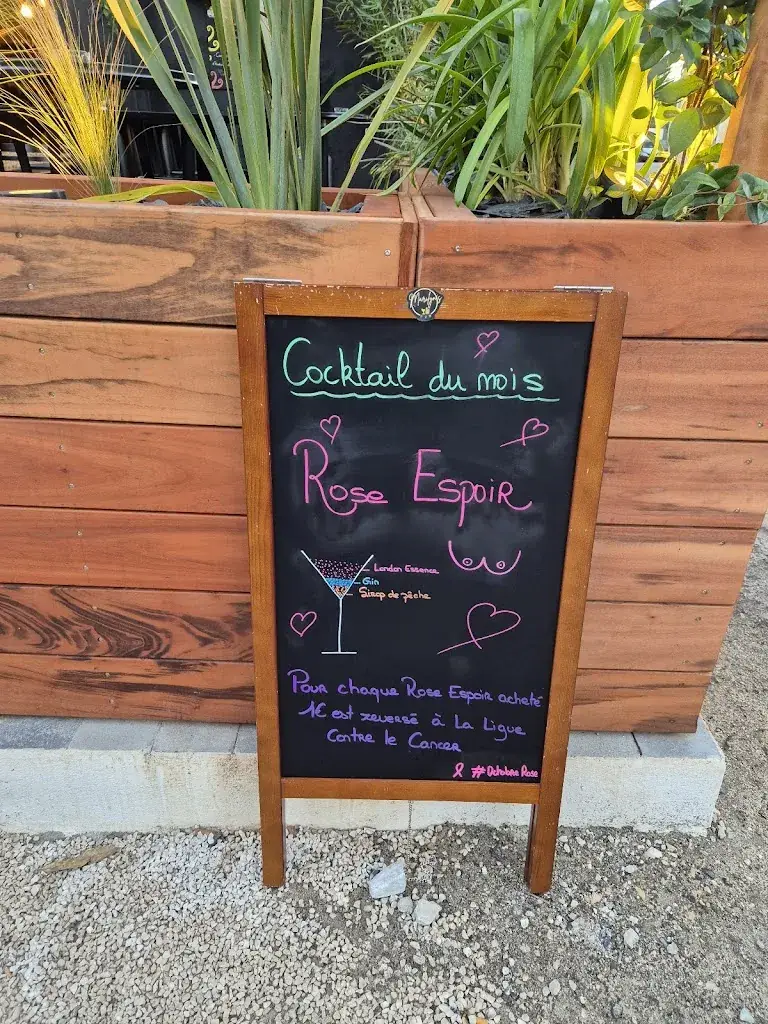 Cocktail du mois
Rose Espoir
London Essence
Gin
Sirop de pêche
Pour chaque Rose Espoir acheté
1€ est reversé à La Ligue
Contre le Cancer
#Octobre Rose